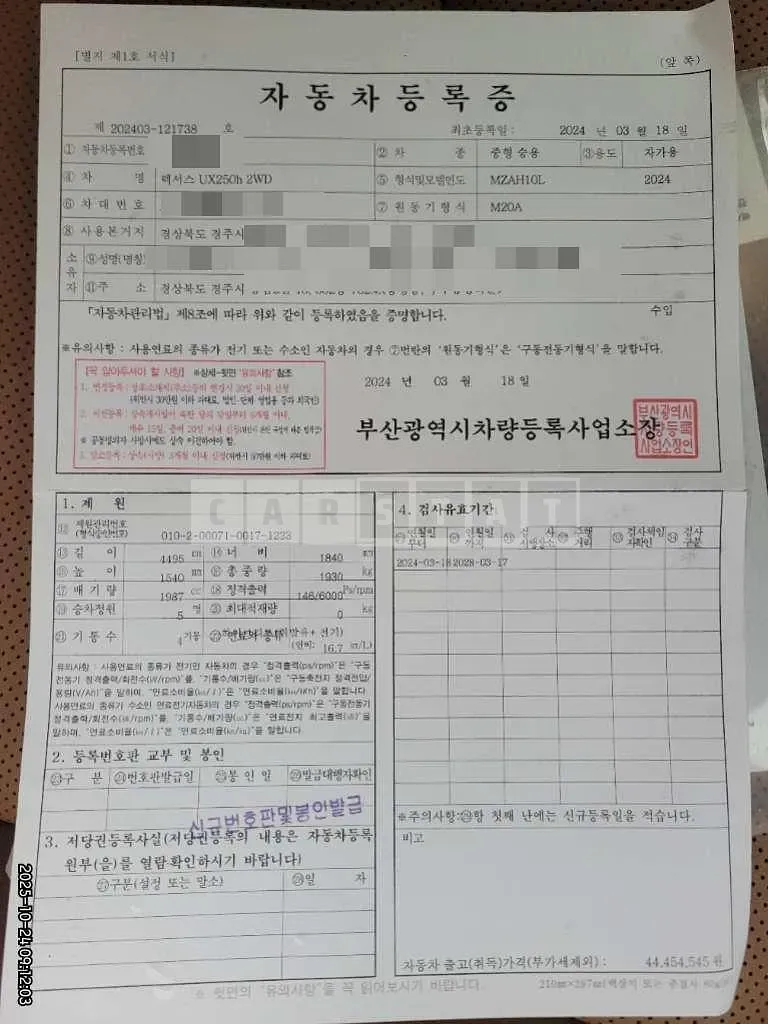 [별지 제1호 서식]
(앞 쪽)
자 동 차 등 록 증
제 202403-121738 호
최초등록일 : 2024 년 03 월 18 일
① 자동차등록번호
② 차 종 중형 승용 ③용도 자가용
④ 차 명 렉서스 UX250h 2WD
⑤ 형식및모델연도 MZAH10L 2024
⑥ 차 대 번 호
⑦ 원동기형식 M20A
⑧ 사용본거지 경상북도 경주시
소유자
⑨성명(명칭)
⑪주 소 경상북도 경주시
「자동차관리법」 제8조에 따라 위와 같이 등록하였음을 증명합니다.
수입
※유의사항 : 사용연료의 종류가 전기 또는 수소인 자동차의 경우 ⑦번란의 '원동기형식'은 '구동전동기형식'을 말합니다.
[꼭 알아두셔야 할 사항] ※상세-뒷면 "유의사항" 참조
2024 년 03 월 18 일
부산광역시차량등록사업소장
부산광역시
차량등록
사업소장인
CARSTAT
1. 제 원
⑫ 제원관리번호
(형식승인번호) 010-2-00071-0017-1223
⑬ 길 이 4495 mm ⑭ 너 비 1840 mm
⑮ 높 이 1540 mm ⑯ 총 중 량 1930 kg
⑰ 배 기 량 1987 cc ⑱ 정격출력 146/6000 Ps/rpm
⑲ 승차정원 5 명 ⑳ 최대적재량 0 kg
㉑ 기 통 수 4 기통 ㉒ 연료의 종류
(연비: 16.7 km/L)
유의사항 : 사용연료의 종류가 전기인 자동차의 경우 "정격출력(ps/rpm)"은 "구동
전동기 정격출력/회전수(㎾/rpm)"를, "기통수/배기량(cc)"은 "구동축전지 정격전압/
용량(V/Ah)"을 말하며, "연료소비율(㎞/ℓ)"은 "연료소비율(㎞/kWh)"을 말합니다.
사용연료의 종류가 수소인 연료전기자동차의 경우 "정격출력(ps/rpm)"은 "구동전동기
정격출력/회전수(㎾/rpm)"를, "기통수/배기량(cc)"은 "연료전지 최고출력(㎾)"을
말하며, "연료소비율(㎞/ℓ)"은 "연료소비율(㎞/㎏)"을 말합니다.
2. 등록번호판 교부 및 봉인
㉓구 분 ㉔번호판발급일 ㉕봉 인 일 ㉖발급대행자확인
신규번호판및봉인발급
3. 저당권등록사실(저당권등록의 내용은 자동차등록
원부(을)를 열람·확인하시기 바랍니다)
㉗구분(설정 또는 말소) ㉘일 자
4. 검사유효기간
연월일부터 연월일까지 검사시행장소 주행거리 검사책임자확인 검사구분
2024-03-18 2028-03-17
※주의사항:㉙항 첫째 난에는 신규등록일을 적습니다.
비고
자동차 출고(취득)가격(부가세제외) : 44,454,545 원
※ 뒷면의 '유의사항'을 꼭 읽어보시기 바랍니다.
2025-10-24 09:12:03